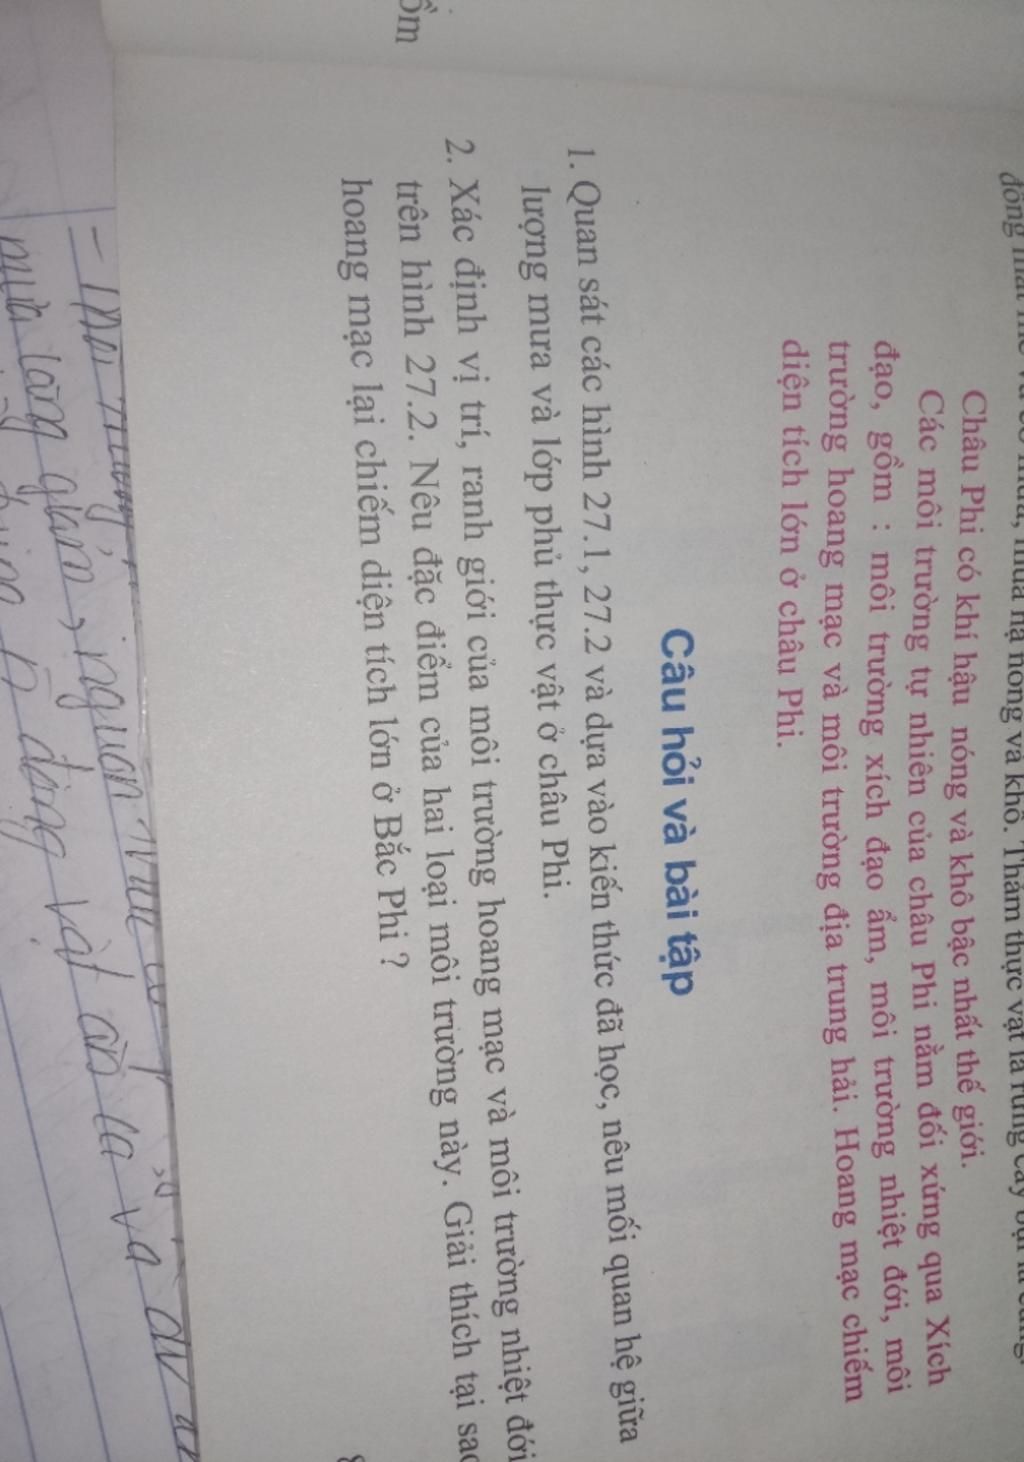 ồm
Châu Phi có khí hậu nóng và khô bậc nhất thế giới.
Các môi trường tự nhiên của châu Phi nằm đối xứng qua Xích
đạo, gồm : môi trường xích đạo ẩm, môi trường nhiệt đới, môi
trường hoang mạc và môi trường địa trung hải. Hoang mạc chiếm
diện tích lớn ở châu Phi.
Câu hỏi và bài tập
1. Quan sát các hình 27.1, 27.2 và dựa vào kiến thức đã học, nêu mối quan hệ giữa
lượng mưa và lớp phủ thực vật ở châu Phi.
2. Xác định vị trí, ranh giới của môi trường hoang mạc và môi trường nhiệt đới
trên hình 27.2. Nêu đặc điểm của hai loại môi trường này. Giải thích tại sao
hoang mạc lại chiếm diện tích lớn ở Bắc Phi ?
động vật ăn